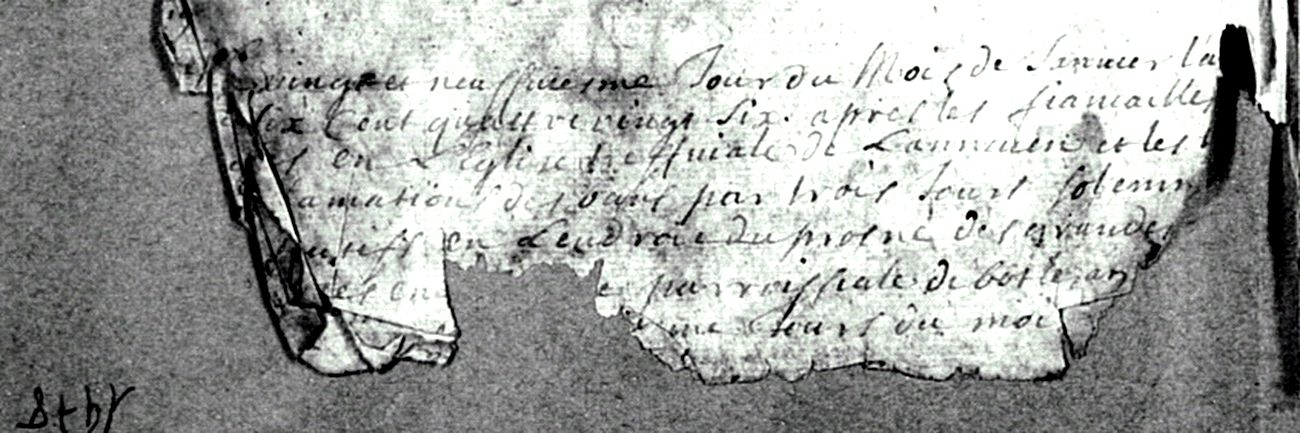 vingt et neuffviesme Jour du Mois de Janvier la
six Cent quattre vingt six. apres les fiansailles
en L'Eglise treffviale de Lannuien et les
amations desvans par trois Jours solemn
utifs en Lendroit du prosne des grandes
es en e parroissiale de botlezan
me Jours du moi